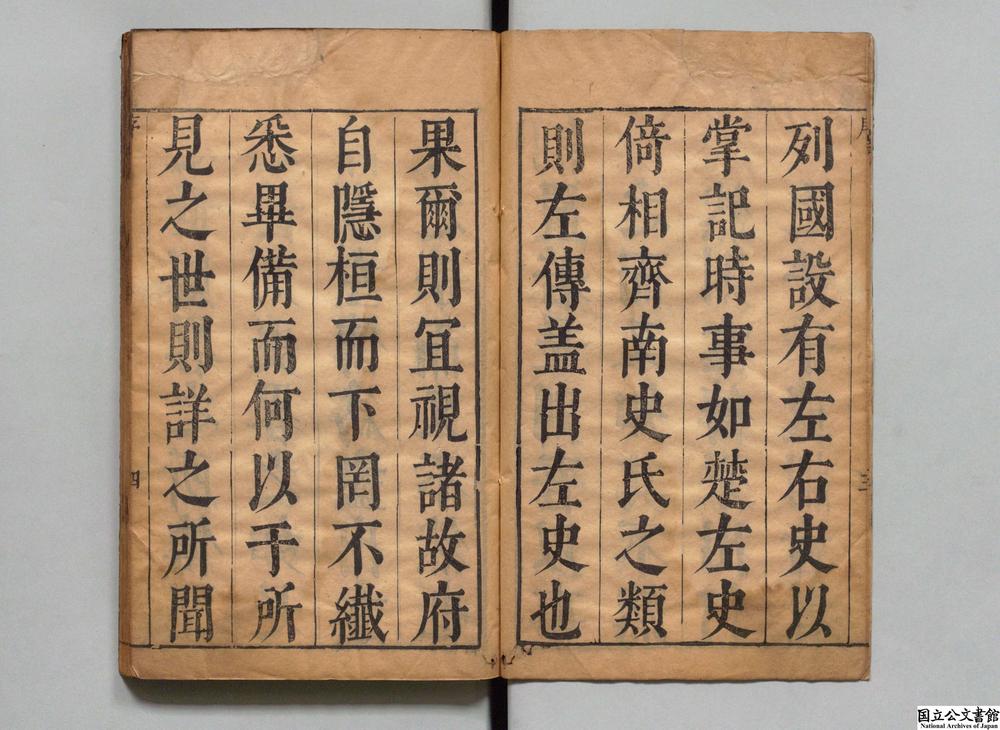 列國設有左右史以
掌記時事如楚左史
倚相齊南史氏之類
則左傳盖出左史也
果爾則冝視諸故府
自隱桓而下罔不纖
悉畢備而何以于所
見之世則詳之所聞
序
四
国立公文書館
National Archives of Japan